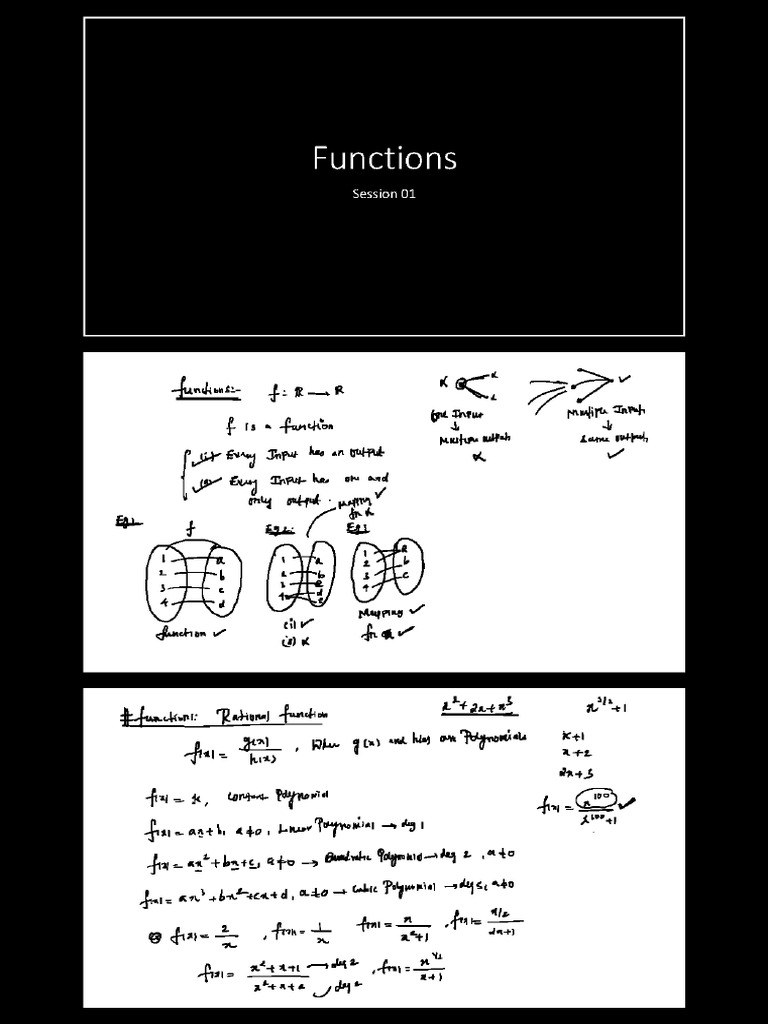 Functions
Session 01
functions:-
f: R → R
f is a function
(i) Every Input has an output
(ii) Every Input has one and
only output.
One Input
↓
Multiple outputs
×
Multiple Inputs
↓
Same outputs
✓
Mapping ✓
fn ×
Eg1.
f
1 a
2 b
3 c
4 d
function ✓
Eg2.
1 a
2 b
3
4 d
(i) ✓
(ii) ×
Eg3
1 a
2 b
3 c
4
Mapping ✓
fn ✓
# functions: Rational function
x² + 2x + x³
x^{3/2} + 1
f(x) = g(x)/h(x), When g(x) and h(x) are Polynomials
x+1
x+2
2x+3
f(x) = x^{100}/x^{100}+1 ✓
f(x) = k, Constant Polynomial
f(x) = ax+b, a≠0, Linear Polynomial → deg 1
f(x) = ax²+bx+c, a≠0 → Quadratic Polynomial → deg 2, a≠0
f(x) = ax³+bx²+cx+d, a≠0 → Cubic Polynomial → deg 3, a≠0
f(x) = 2/x, f(x) = 1/x f(x) = x/x²+1, f(x) = x/2/2x+1
f(x) = x²+x+1/x²+x+2 → deg 2 → deg 2, f(x) = x^{1/2}/x+1